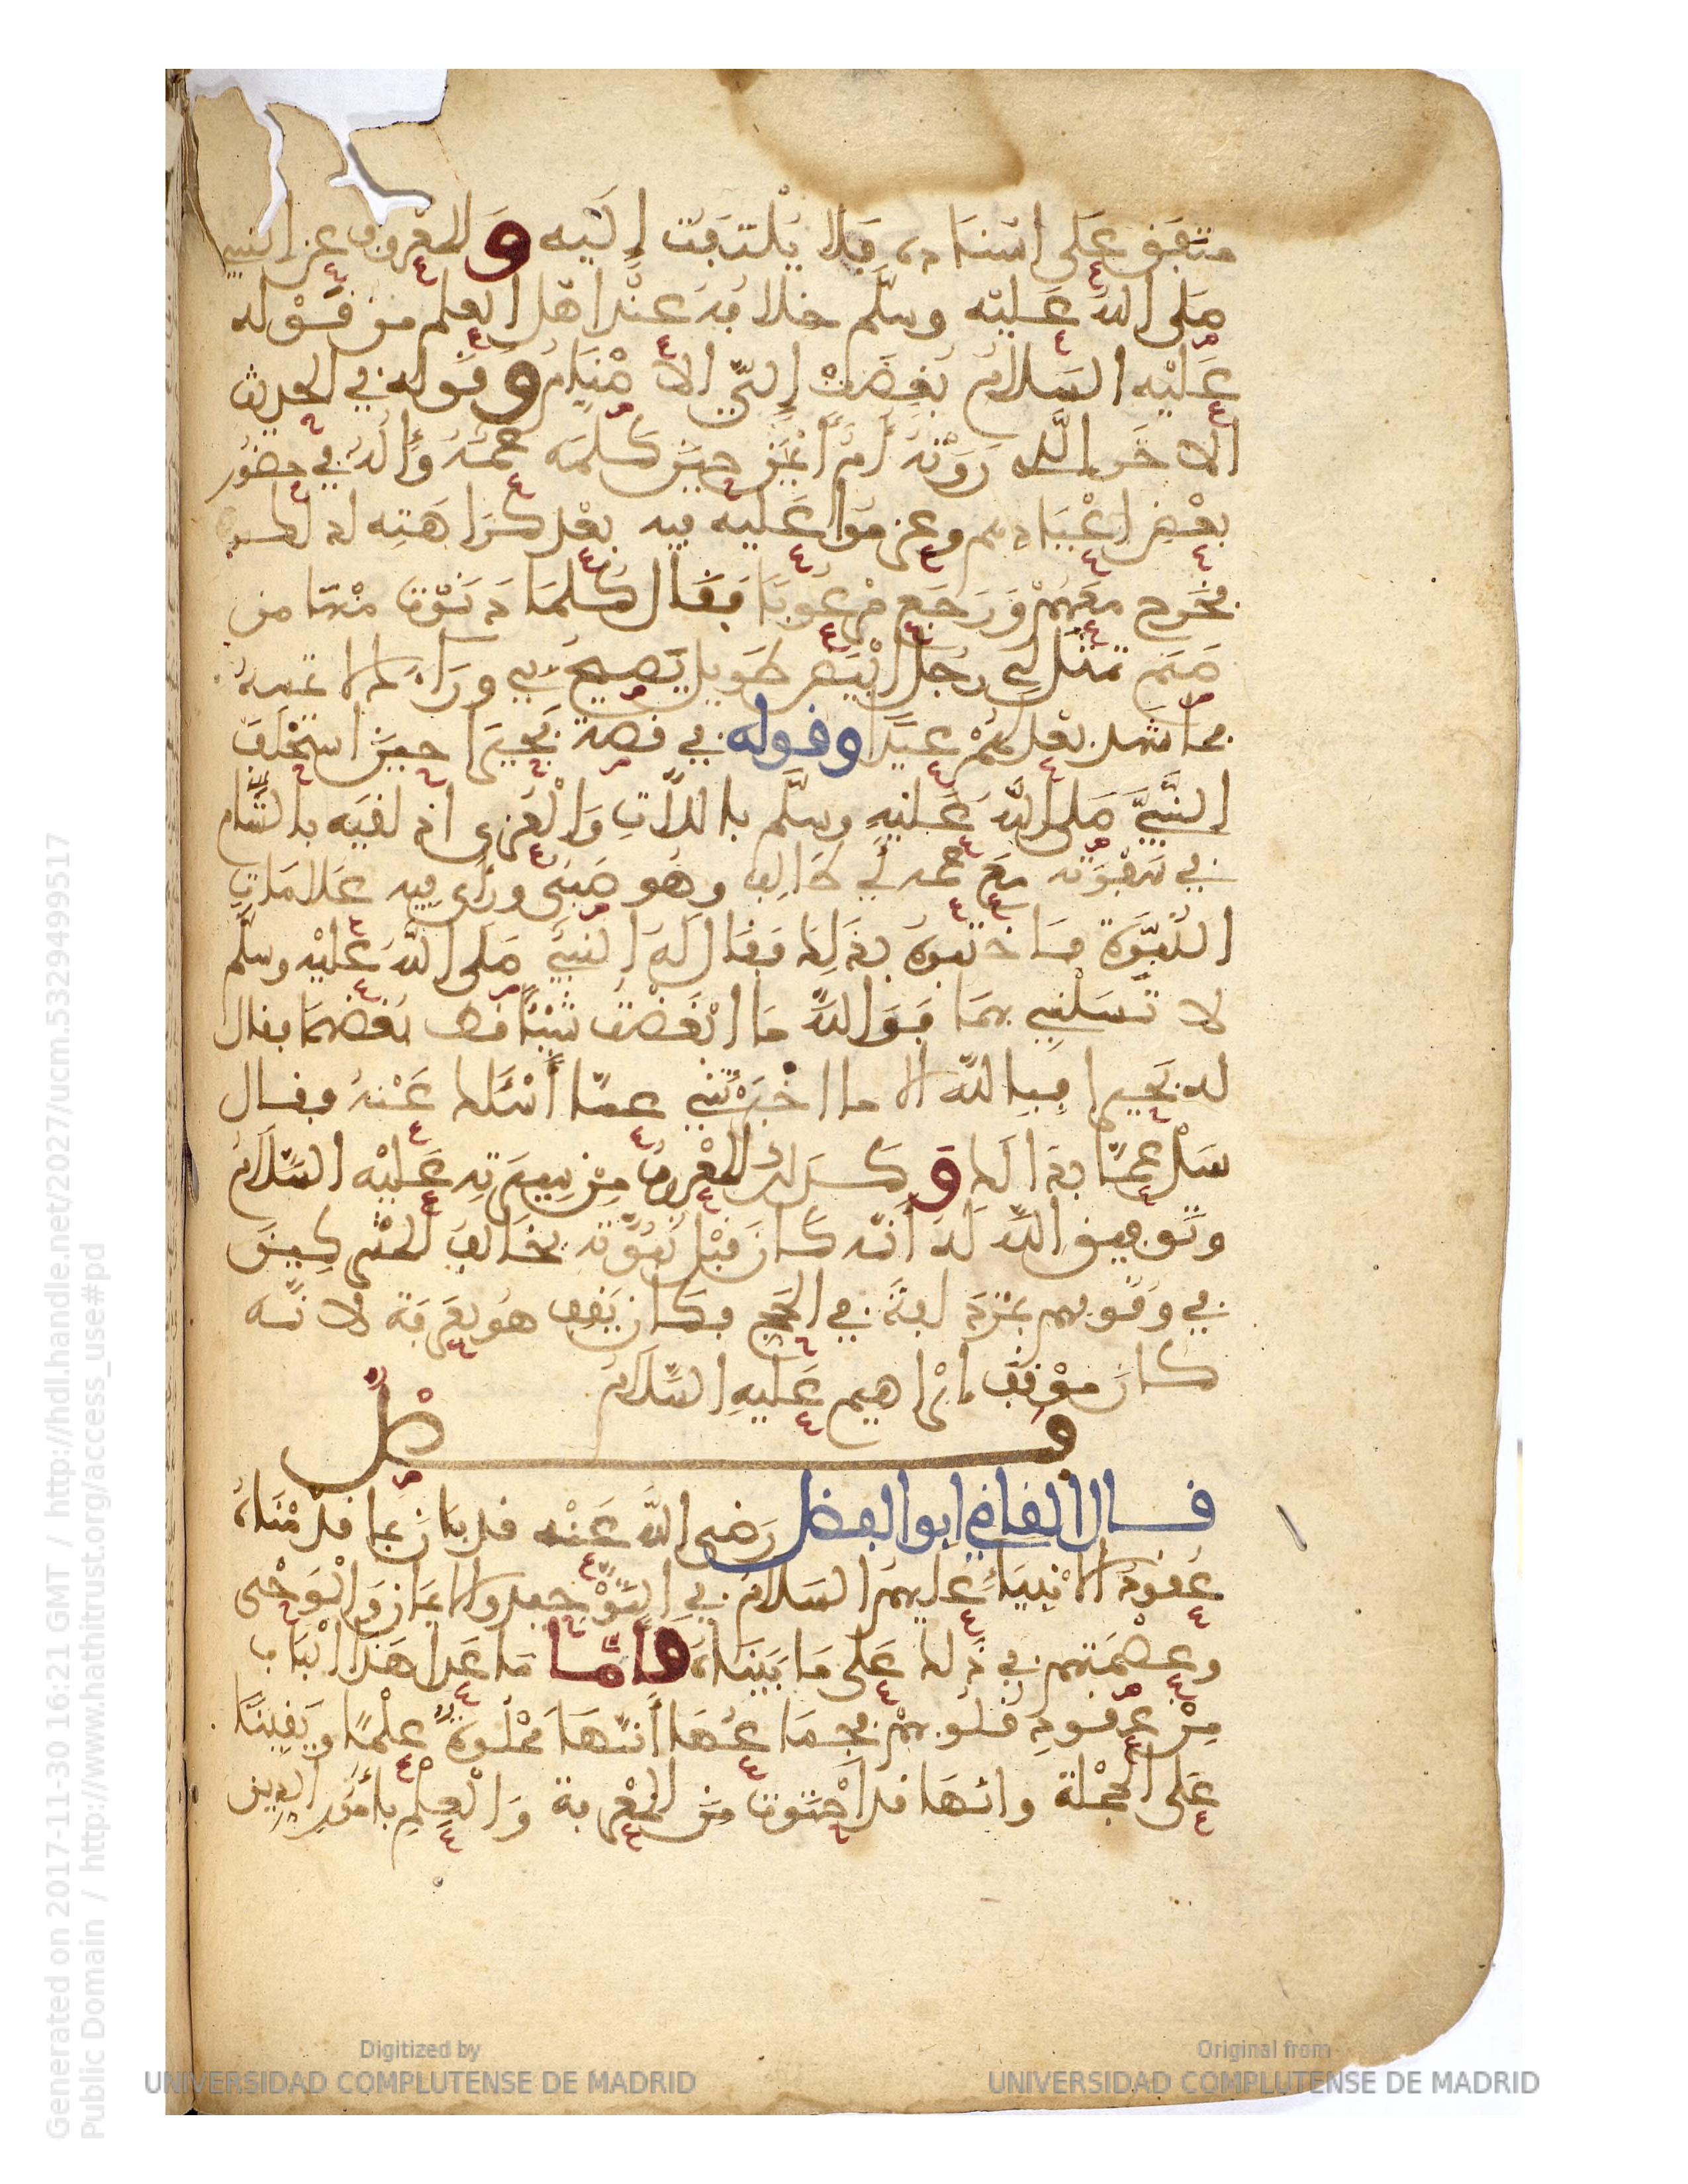 متفق على اسناده فلا يلتفت إليه والمعروف عن النبي
صلى الله عليه وسلم خلافه عند اهل العلم من قوله
عليه السلام بغضت إلي الاصنام وقوله في الحديث
الاخر الذي روته أم أيمن حين كلمه عمه وءاله في حضور
بعض اعيادهم وعزموا عليه فيه بعد كراهته لذلك
فخرج معهم ورجع مرعوبا فقال كلما دنوت منها من
صنم تمثل لي رجل ابيض طويل يصيح بي وراءك لا تمسه
فما شهد بعد لهم عيدا وقوله في قصة بحيرا حين استحلف
النبي صلى الله عليه وسلم باللات والعزى اذ لقيه بالشام
في سفرته مع عمه أبي طالب وهو صبي ورأى فيه علامات
النبوة فاختبره بذلك فقال له النبي صلى الله عليه وسلم
لا تسلني بهما فوالله ما ابغضت شيئا قط بغضهما فقال
له بحيرا فبالله الا ما اخبرتني عما أسئلك عنه فقال
سل عما بدا لك وكذلك المعروف من سيرته عليه السلام
وتوفيق الله له أنه كان قبل نبوته يخالف المشركين
في وقوفهم بمزدلفة في الحج فكان يقف هو بعرفة لانه
كان موقف ابراهيم عليه السلام
فصل
قال القاضي ابو الفضل رضي الله عنه قد بان بما قدمناه
عقود الانبياء عليهم السلام في التوحيد والايمان والوحى
وعصمتهم في ذلك على ما بيناه فأما ما عدا هذا الباب
من عقود قلوبهم فجماعها أنها مملوة علما ويقينا
على الجملة وانها قد احتوت من المعرفة والعلم بأمور الدين
Generated on 2017-11-30 16:21 GMT / http://hdl.handle.net/2027/ucm.5329499517
Public Domain / http://www.hathitrust.org/access_use#pd
Digitized by
UNIVERSIDAD COMPLUTENSE DE MADRID
Original from
UNIVERSIDAD COMPLUTENSE DE MADRID